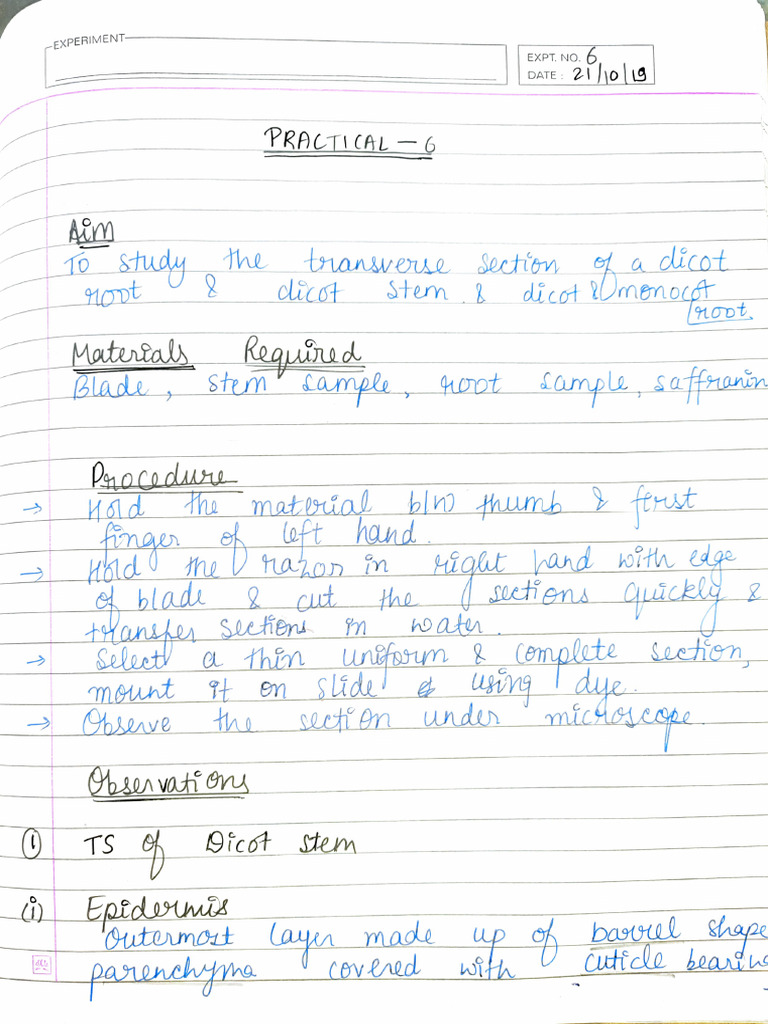 EXPERIMENT
EXPT. NO. 6
DATE : 21/10/19
PRACTICAL - 6
Aim
To study the transverse section of a dicot
root & dicot stem & dicot & monocot
root.
Materials Required
Blade, stem sample, root sample, saffranin
Procedure
→ Hold the material b/w thumb & first
finger of left hand.
→ Hold the razor in right hand with edge
of blade & cut the sections quickly &
transfer sections in water.
→ Select a thin uniform & complete section,
mount it on slide using dye.
→ Observe the section under microscope.
Observations
① TS of Dicot stem
(i) Epidermis
Outermost layer made up of barrel shape
parenchyma covered with cuticle bearing